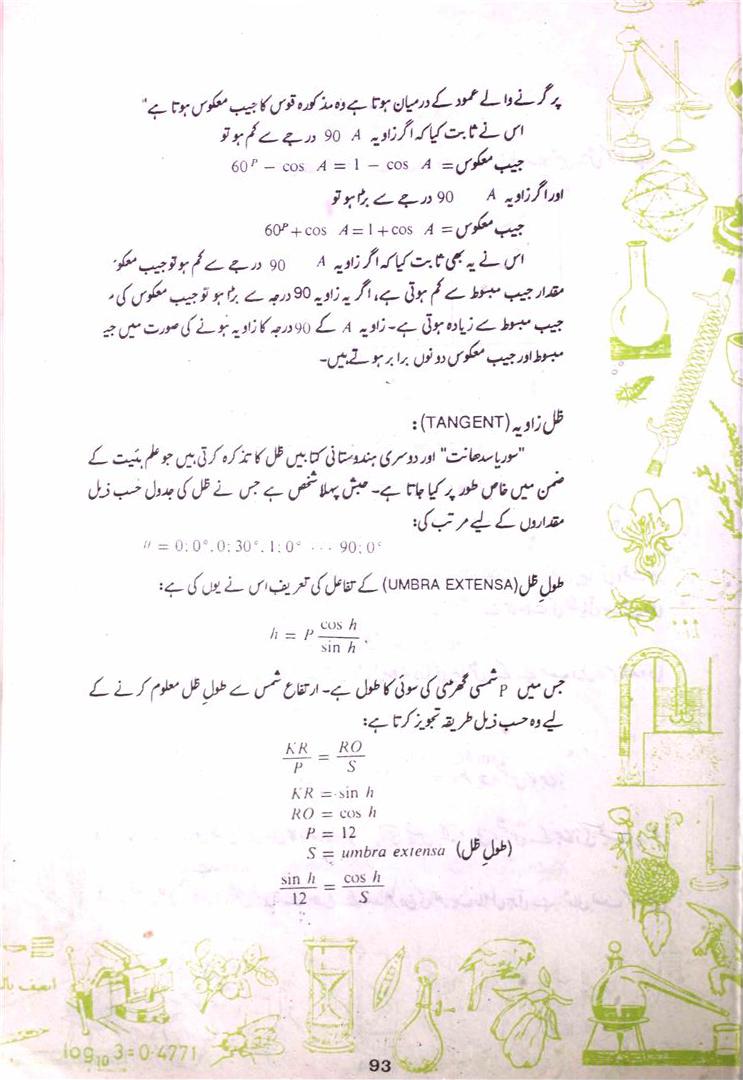 پر گرنے والے عمود کے درمیان ہوتا ہے وہ مذکورہ قوس کا جیب معکوس ہوتا ہے"
اس نے ثابت کیا کہ اگر زاویہ A 90 درجے سے کم ہو تو
جیب معکوس = 60ᴾ − cos A = 1 − cos A
اور اگر زاویہ A 90 درجے سے بڑا ہو تو
جیب معکوس = 60ᴾ + cos A = 1 + cos A
اس نے یہ بھی ثابت کیا کہ اگر زاویہ A 90 درجے سے کم ہو تو جیب معکو
مقدار جیب مبسوط سے کم ہوتی ہے، اگر یہ زاویہ 90 درجہ سے بڑا ہو تو جیب معکوس کی
جیب مبسوط سے زیادہ ہوتی ہے۔ زاویہ A کے 90 درجہ کا زاویہ ہونے کی صورت میں جیہ
مبسوط اور جیب معکوس دونوں برابر ہوتے ہیں۔
ظل زاویہ (TANGENT):
"سوریا سدھانت" اور دوسری ہندوستانی کتابیں ظل کا تذکرہ کرتی ہیں جو علم ہئیت کے
ضمن میں خاص طور پر کیا جاتا ہے۔ حبش پہلا شخص ہے جس نے ظل کی جدول حسب ذیل
مقداروں کے لیے مرتب کی:
= 0; 0°, 0; 30°, 1; 0° ··· 90; 0°
طول ظل (UMBRA EXTENSA) کے تفاعل کی تعریف اس نے یوں کی ہے:
h = P cos h / sin h
جس میں P شمسی گھڑی کی سوئی کا طول ہے۔ ارتفاع شمس سے طول ظل معلوم کرنے کے
لیے وہ حسب ذیل طریقہ تجویز کرتا ہے:
KR / P = RO / S
KR = sin h
RO = cos h
P = 12
S = umbra extensa (طول ظل)
sin h / 12 = cos h / S
log₁₀ 3=0·4771
93